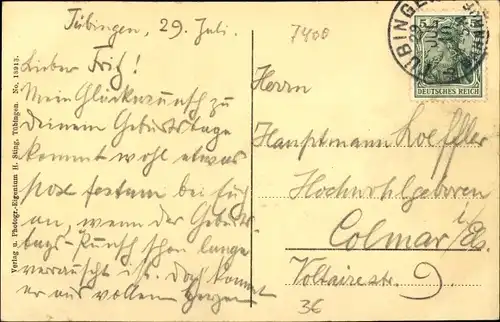 Tübingen, 29. Juli.
7400
Lieber Fritz!
Mein Glückwunsch zu
deinem Geburtstage
kommt wohl etwas
post festum bei Euch
an, wenn der Geburts-
tags-Punsch schon lange
verrauscht ist. Doch kommt
er aus vollem Herzen
TÜBINGEN
5 5
DEUTSCHES REICH
Herrn
Hauptmann Loeffler
Hochwohlgeboren
Colmar i/Els.
Voltairestr. 9.
36
Verlag u. Photogr.-Eigentum H. Sting, Tübingen. No. 13913.